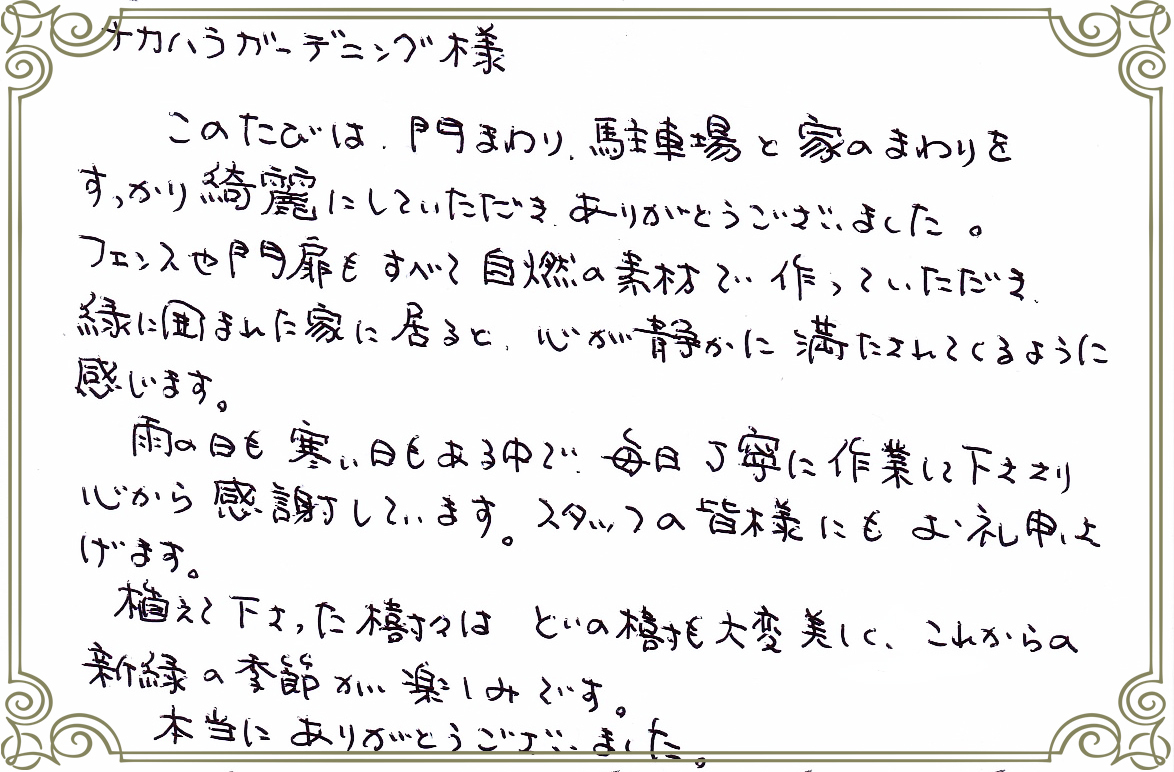 ナカハラガーデニング様
このたびは、門まわり、駐車場と家のまわりを
すっかり綺麗にしていただき、ありがとうございました。
フェンスや門扉もすべて自燃の素材で作っていただき、
緑に囲まれた家に居ると、心が静かに満たされてくるように
感じます。
雨の日も寒い日もある中で、毎日丁寧に作業して下ささり
心から感謝しています。スタッフの皆様にもお礼申し上
げます。
植えて下さった樹々は どの樹も大変美しく、これからの
新緑の季節が楽しみです。
本当にありがとうございました。